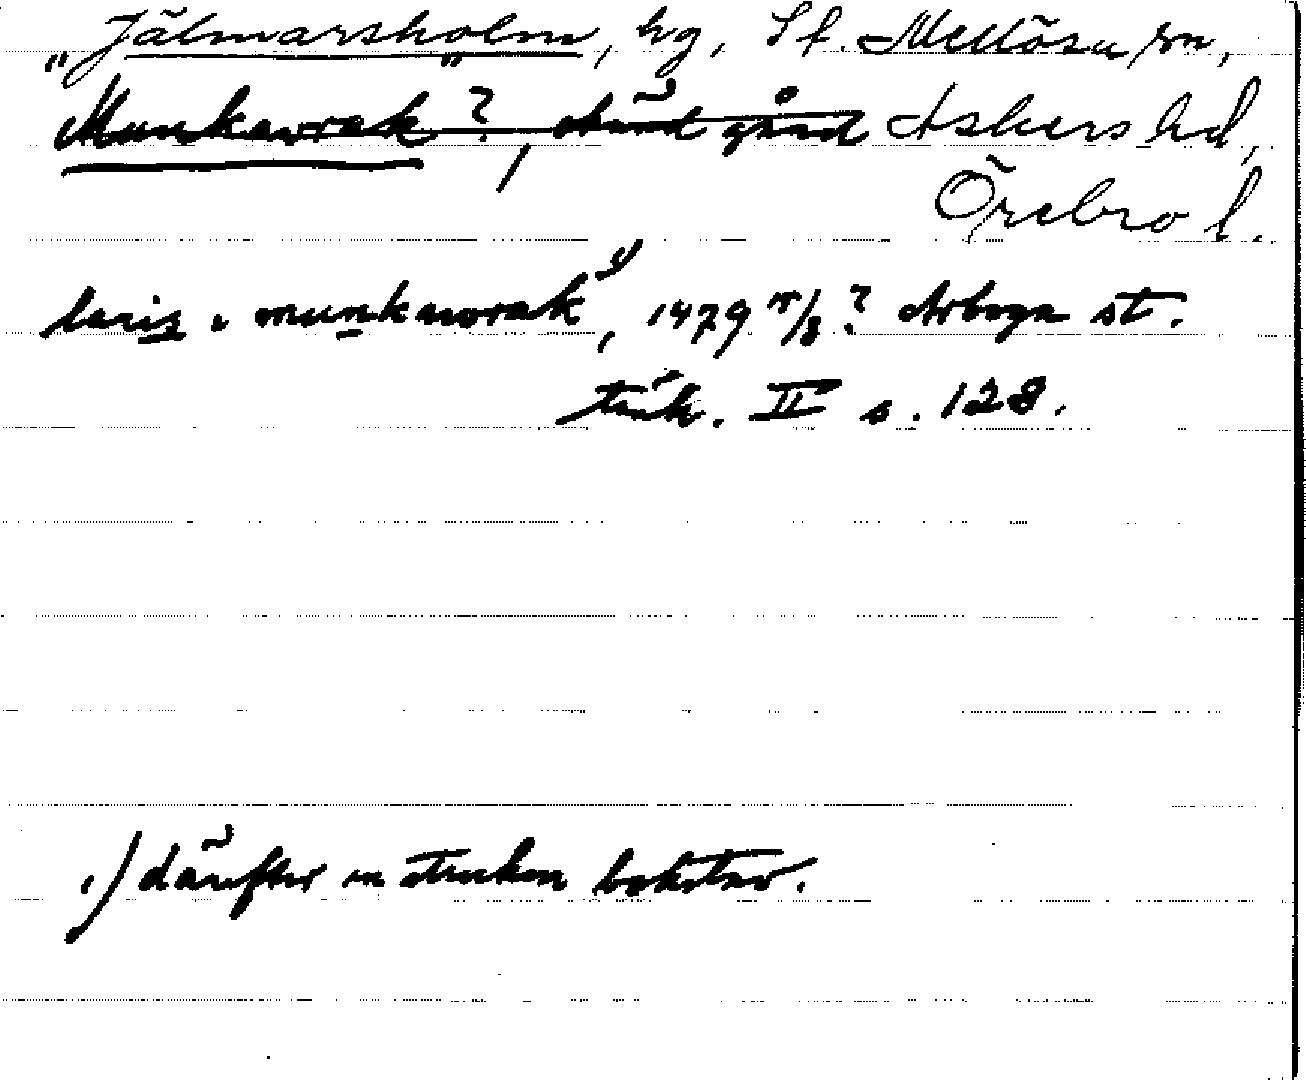 "Jälmarsholm", hg, St. Mellösa sn,
Munkavrak?, okänd gård Askers hd,
Örebro l.
laris i munkawrak¹⁾, 1479 /8? Arboga st.
tänk. II s. 128.
1) därefter en struken bokstav.